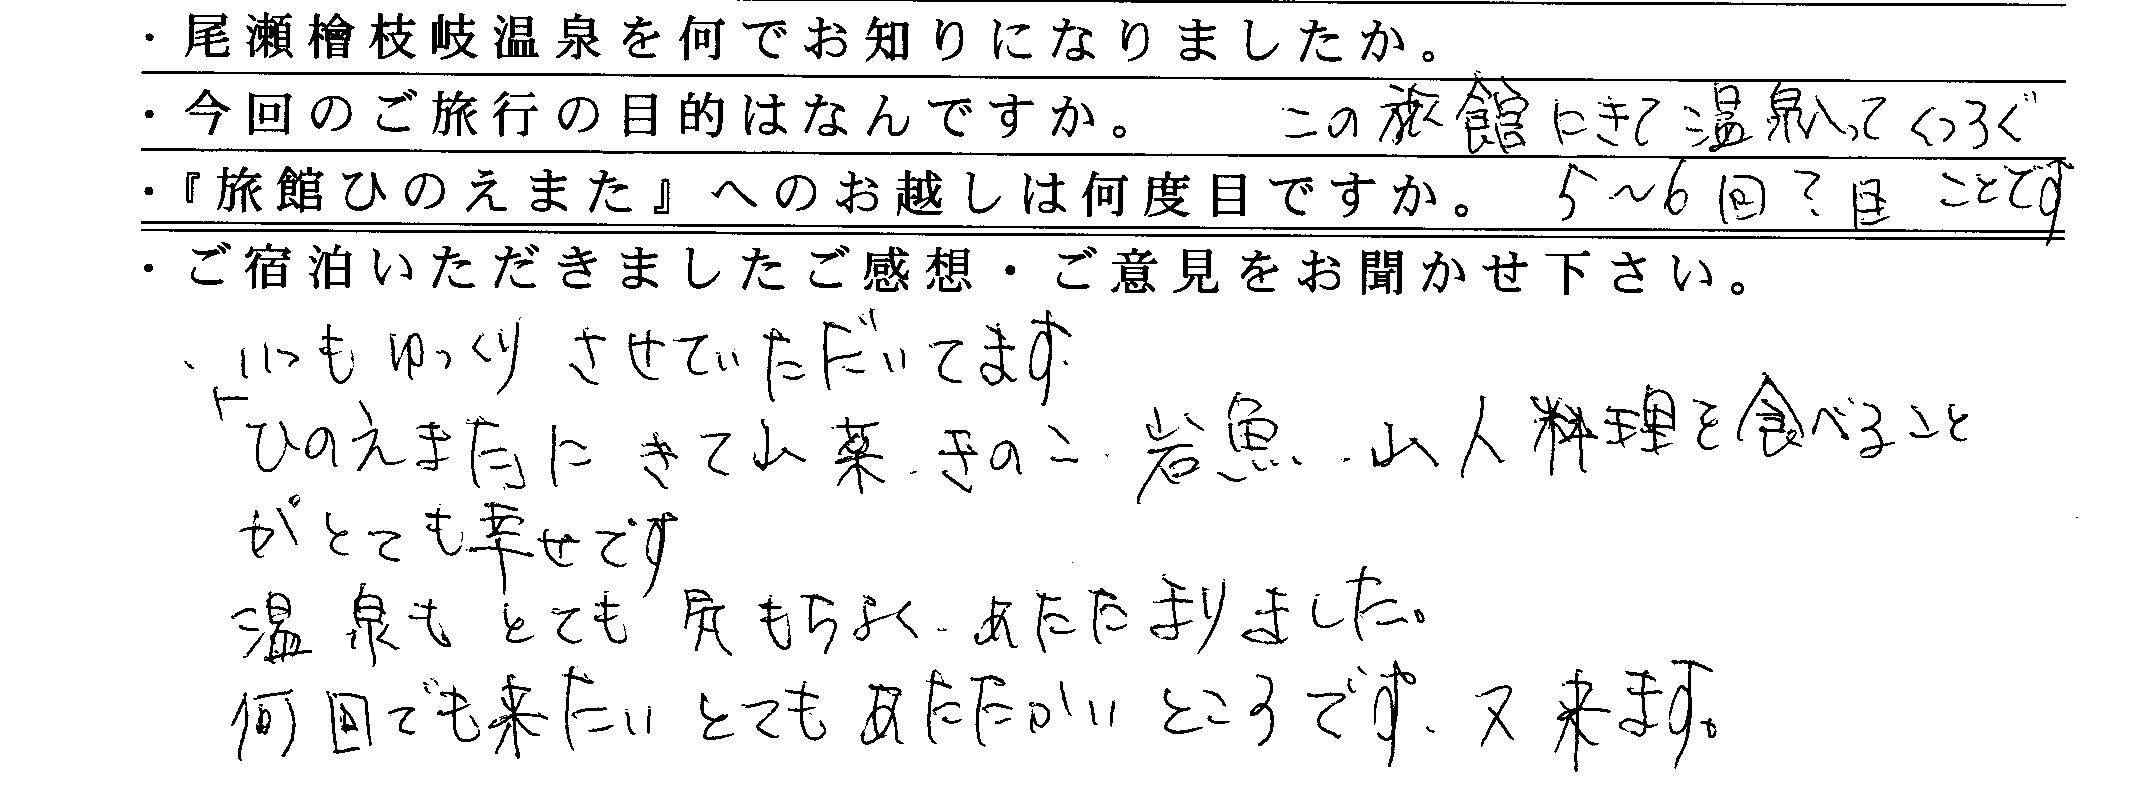 ・尾瀬檜枝岐温泉を何でお知りになりましたか。
・今回のご旅行の目的はなんですか。 この旅館にきて温泉入ってくつろぐ
・『旅館ひのえまた』へのお越しは何度目ですか。 5～6回?目 ことです
・ご宿泊いただきましたご感想・ご意見をお聞かせ下さい。
・いつもゆっくりさせていただいてます
「ひのえまた」にきて山菜・きのこ・岩魚・山人料理を食べること
がとても幸せです
温泉もとても気もちよく、あたたまりました。
何回でも来たいとてもあたたかいところです、又来ます。